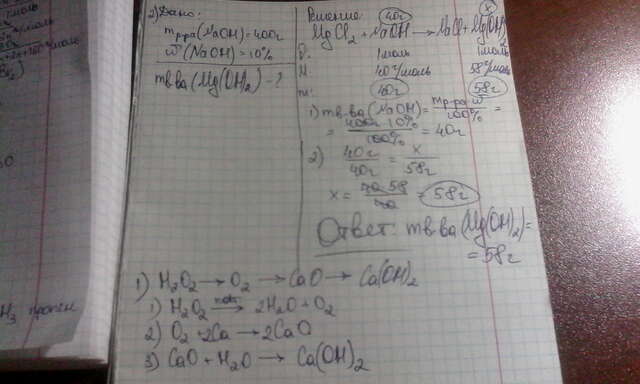 2) Дано:
mр-ра(NaOH)=400г
w(NaOH)=10%
mв-ва(Mg(OH)2)-?
Решение:
40г
x
MgCl2 + NaOH → NaCl + Mg(OH)2
1моль 1моль
M: 40г/моль 58г/моль
m: 40г 58г
1) mв-ва(NaOH)= mр-ра·w / 100% =
= 400г·10% / 100% = 40г
2) 40г / 40г = x / 58г
x = 40·58 / 40 = 58г
Ответ: mв-ва(Mg(OH)2)=
=58г
1) H2O2 → O2 → CaO → Ca(OH)2
1) H2O2 → 2H2O+O2
2) O2+2Ca → 2CaO
3) CaO+H2O → Ca(OH)2